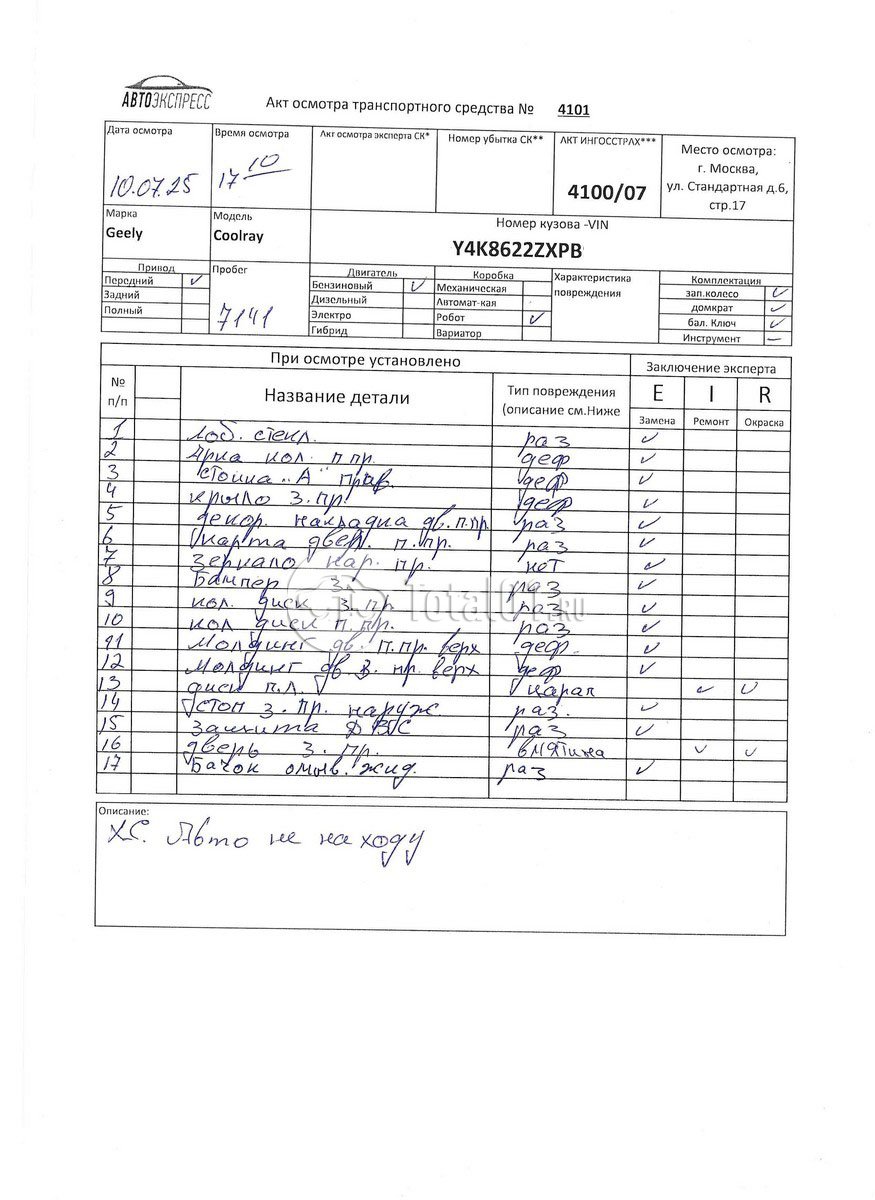 АВТОЭКСПРЕСС
Акт осмотра транспортного средства № 4101
Дата осмотра
10.07.25
Время осмотра
17 10
Акт осмотра эксперта СК*
Номер убытка СК**
АКТ ИНГОССТРАХ***
4100/07
Место осмотра:
г. Москва,
ул. Стандартная д.6,
стр.17
Марка
Geely
Модель
Coolray
Номер кузова -VIN
Y4K8622ZXPB
Привод
Передний ✓
Задний
Полный
Пробег
7141
Двигатель
Бензиновый ✓
Дизельный
Электро
Гибрид
Коробка
Механическая
Автомат-кая
Робот ✓
Вариатор
Характеристика
повреждения
Комплектация
зап.колесо ✓
домкрат ✓
бал. Ключ ✓
Инструмент –
При осмотре установлено
Заключение эксперта
№
п/п
Название детали
Тип повреждения
(описание см.Ниже
E I R
Замена Ремонт Окраска
1 Лоб. стекл. раз ✓
2 Арка кол. п.пр. деф ✓
3 Стойка "А" прав. деф ✓
4 крыло з.пр. деф ✓
5 декор. накладка дв.п.пр. раз ✓
6 карта двер. п.пр. раз ✓
7 Зеркало нар. пр. нет ✓
8 Бампер з. раз ✓
9 кол. диск з.пр. раз ✓
10 кол диск п.пр. раз ✓
11 Молдинг дв. п.пр. верх деф. ✓
12 Молдинг дв з. пр. верх деф ✓
13 диск п.л. царап ✓ ✓
14 стоп з. пр. наруж. раз. ✓
15 Защита ДВС раз ✓
16 дверь з. пр. вмятина ✓ ✓
17 Бачок омыв. жид. раз ✓
Total01.RU
Описание:
Х.С. Авто не на ходу